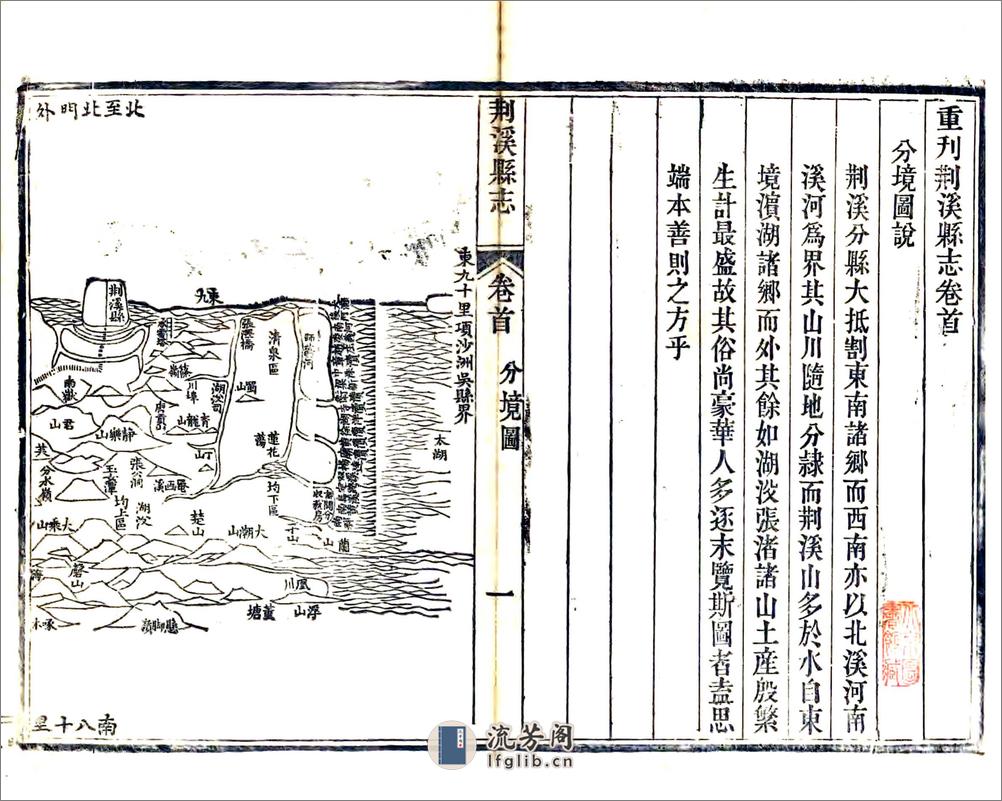 重刊荆溪縣志卷首
分境圖說
荆溪分縣大抵割東南諸鄉而西南亦以北溪河南
溪河爲界其山川隨地分隸而荆溪山多於水自東
境濱湖諸鄉而外其餘如湖㳇張渚諸山土産殷繁
生計最盛故其俗尚豪華人多逐末覽斯圖者盍思
端本善則之方乎
荆溪縣志
卷首
分境圖
一
東九十里項沙洲吳縣界
北至北門外
東九
荆溪縣
太湖
清泉區
張溪橋
蜀山
蓮花蕩
湖㳇司
川埠
青龍山
丁山
南嶽
君山
靜樂山
張公洞
玉女潭
分水嶺
均上區
湖㳇
均下區
楚山
大潮山
蘭山
大乘山
磨山
鳳川
董塘
浮山
懸脚嶺
啄木
南八十里
流芳阁
lfglib.cn